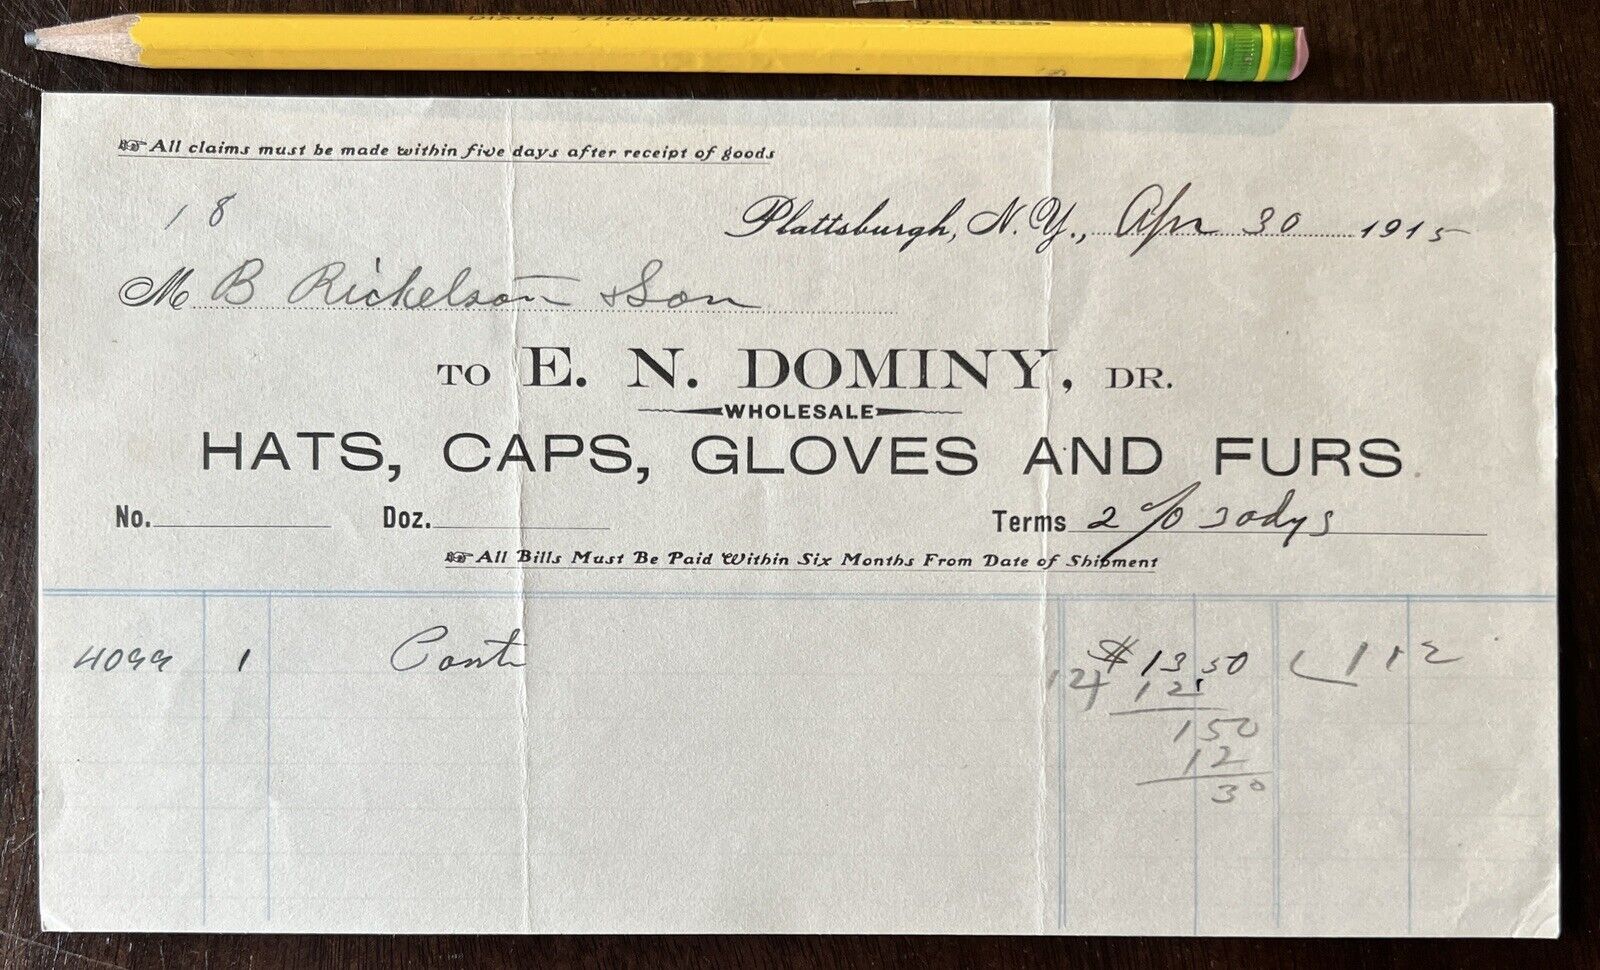 DIXON TICONDEROGA
☞ All claims must be made within five days after receipt of goods
18
Plattsburgh, N. Y., Apr 30 1915
M B Rickelson & Son
TO E. N. DOMINY, DR.
WHOLESALE
HATS, CAPS, GLOVES AND FURS.
No. Doz. Terms 2 % 30 dys
☞ All Bills Must Be Paid Within Six Months From Date of Shipment
4099 1 $ 13 50 1 12
12 12
150
12
30